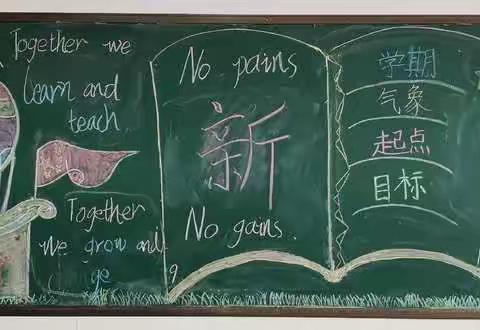 Together we
learn and
teach.
Together
We grow and
ge
No pains
新
No gains.
学期
气象
起点
目标